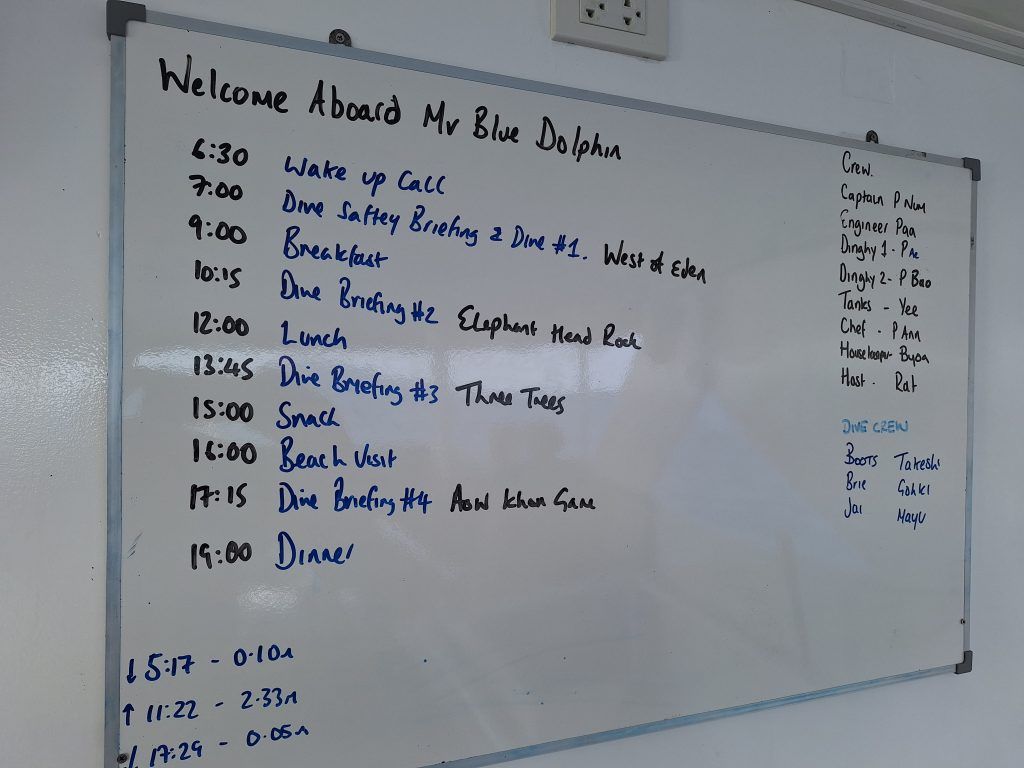 Welcome Aboard Mv Blue Dolphin
6:30 Wake up Call
7:00 Dive Saftey Briefing & Dive #1. West of Eden
9:00 Breakfast
10:15 Dive Briefing #2 Elephant Head Rock
12:00 Lunch
13:45 Dive Briefing #3 Three Trees
15:00 Snack
16:00 Beach Visit
17:15 Dive Briefing #4 Aow Khan Gane
19:00 Dinner
↓ 5:17 - 0.10m
↑ 11:22 - 2.33m
↓ 17:29 - 0.05m
Crew.
Captain P Num
Engineer Paa
Dinghy 1 - P
Dinghy 2 - P Bao
Tanks - Yee
Chef - P Ann
Housekeeper
Host - Rat
DIVE CREW
Boots Takeshi
Brie Gohki
Jai Mayu